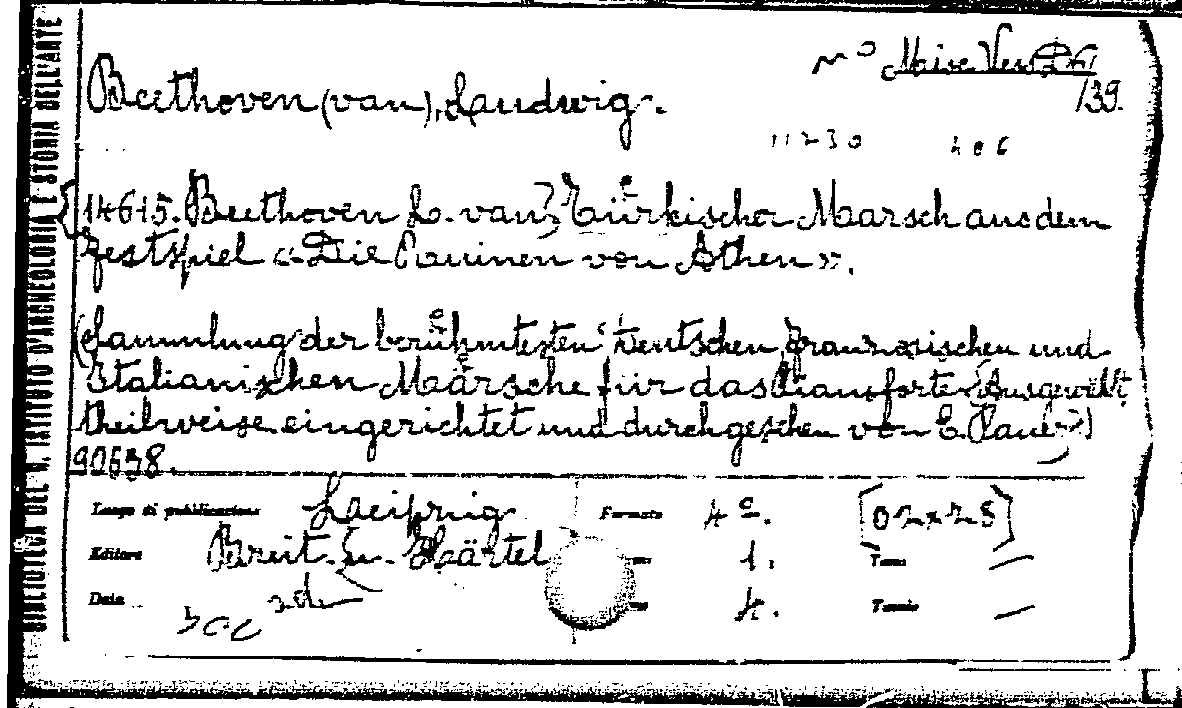 BIBLIOTECA DEL R. ISTITUTO D'ARCHEOLOGIA E STORIA DELL'ARTE
Misc. Ven.
139.
Beethoven (van), Laudwig.
11230 406
14615. Beethoven L. van, Türkischer Marsch aus dem
Festspiel «Die Ruinen von Athen».
(Sammlung der berühmtesten Deutschen, Französischen und
Italianischen Märsche für das Pianoforte. Ausgewählt,
theilweise eingerichtet und durchgesehen von E. Pauer)
90638.
Luogo di pubblicazione Leipzig Formato 4°. [02x25]
Editore Breit. u. Härtel 1. Tomo —
Data 4. Tavole —